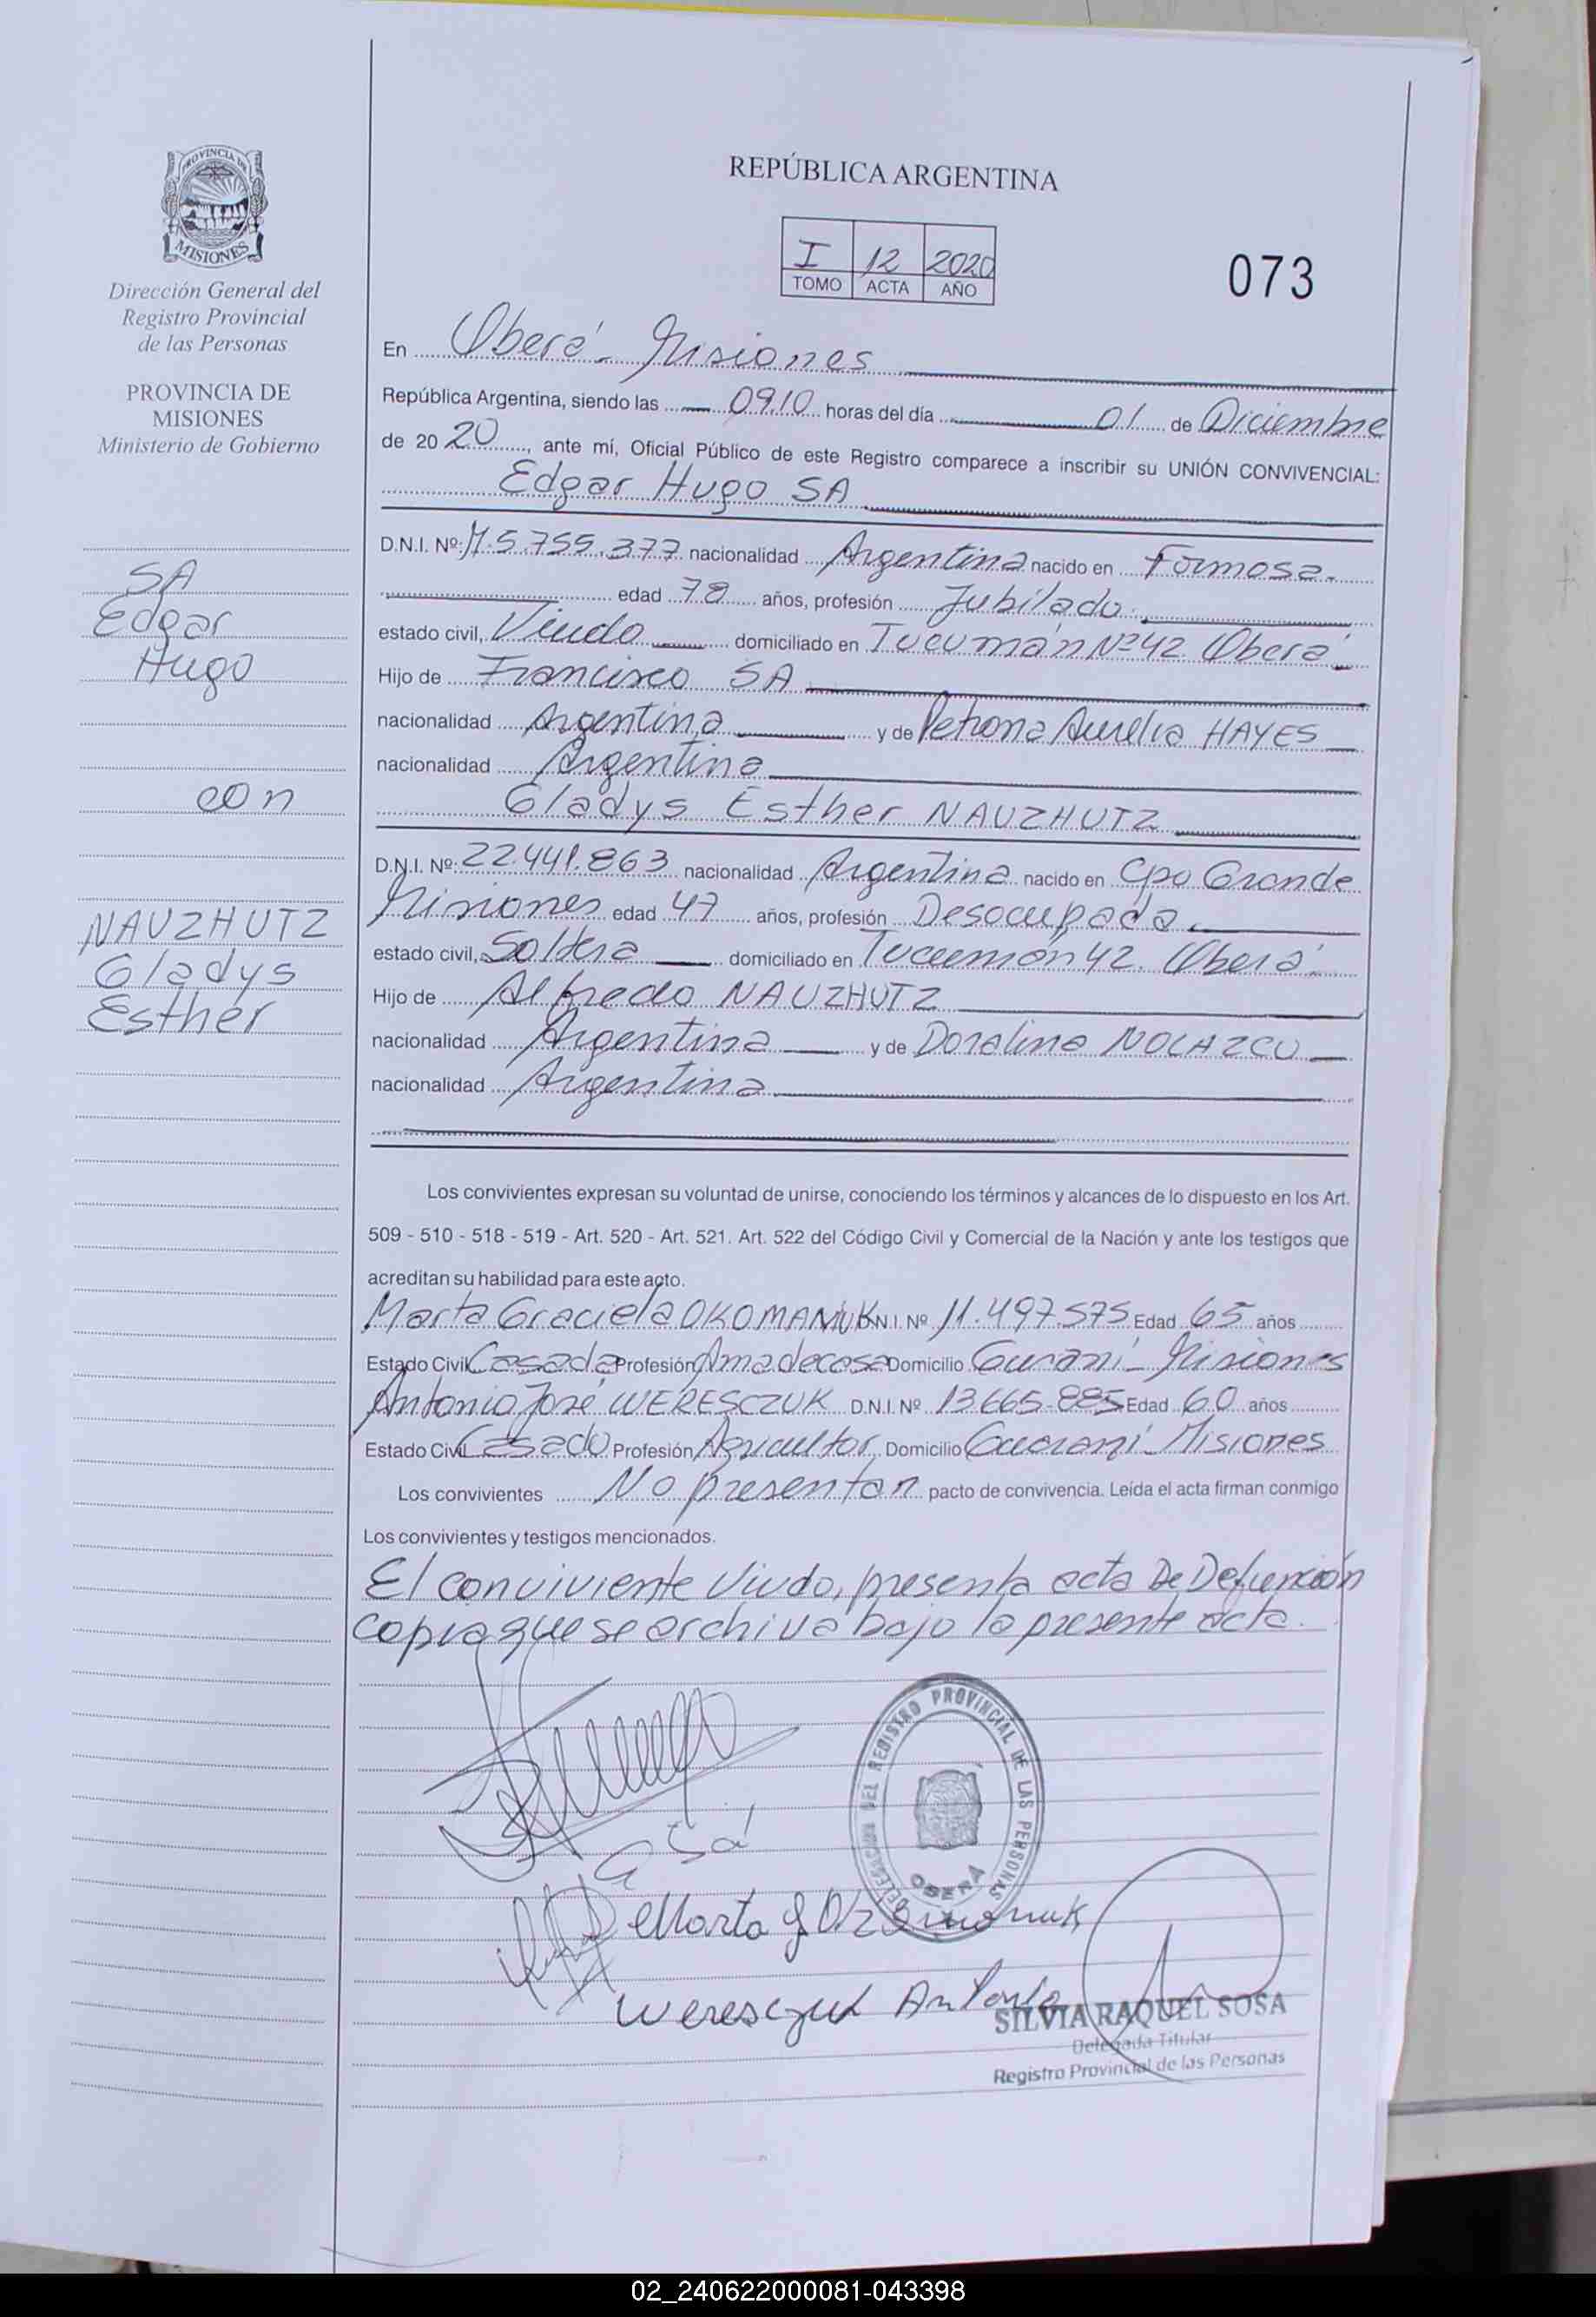 PROVINCIA DE
MISIONES
Dirección General del
Registro Provincial
de las Personas
PROVINCIA DE
MISIONES
Ministerio de Gobierno
SA
Edgar
Hugo
con
NAUZHUTZ
Gladys
Esther
REPÚBLICA ARGENTINA
I 12 2020
TOMO ACTA AÑO
073
En Oberá - Misiones
República Argentina, siendo las 09.10 horas del día 01 de Diciembre
de 2020, ante mí, Oficial Público de este Registro comparece a inscribir su UNIÓN CONVIVENCIAL:
Edgar Hugo SA
D.N.I. Nº: M.5.755.377 nacionalidad Argentina nacido en Formosa.
edad 78 años, profesión Jubilado.
estado civil, Viudo domiciliado en Tucumán Nº 42. Oberá
Hijo de Francisco SA
nacionalidad Argentina y de Petrona Aurelia HAYES
nacionalidad Argentina
Gladys Esther NAUZHUTZ
D.N.I. Nº: 22.441.863 nacionalidad Argentina nacido en Cpo Grande
Misiones edad 47 años, profesión Desocupada.
estado civil, Soltera domiciliado en Tucumán 42. Oberá
Hijo de Alfredo NAUZHUTZ
nacionalidad Argentina y de Doralina NOLAZCO
nacionalidad Argentina
Los convivientes expresan su voluntad de unirse, conociendo los términos y alcances de lo dispuesto en los Art.
509 - 510 - 518 - 519 - Art. 520 - Art. 521. Art. 522 del Código Civil y Comercial de la Nación y ante los testigos que
acreditan su habilidad para este acto.
Marta Graciela OKOMANIUK D.N.I. Nº 11.497.575 Edad 65 años
Estado Civil Casada Profesión Ama de casa Domicilio Guaraní - Misiones
Antonio José WERESCZUK D.N.I. Nº 13.665.885 Edad 60 años
Estado Civil Casado Profesión Agricultor Domicilio Guaraní - Misiones
Los convivientes No presentan pacto de convivencia. Leída el acta firman conmigo
Los convivientes y testigos mencionados.
El conviviente Viudo, presenta acta De Defunción
copia que se archiva bajo la presente acta.
DELEGACION DEL REGISTRO PROVINCIAL DE LAS PERSONAS
OBERÁ
Marta G
Weresczuk Antonio
SILVIA RAQUEL SOSA
Delegada Titular
Registro Provincial de las Personas
02_240622000081-043398